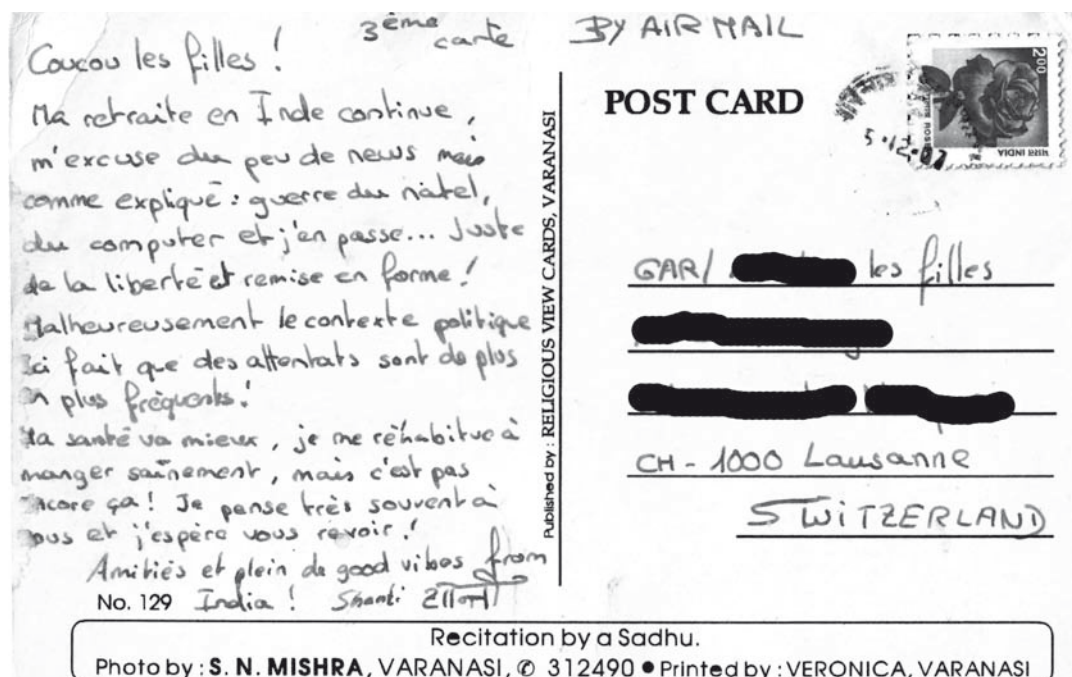 3ème
carte
Coucou les filles !
Ma retraite en Inde continue,
m'excuse du peu de news mais
comme expliqué : guerre du natel,
du computer et j'en passe... Juste
de la liberté et remise en forme !
Malheureusement le contexte politique
ici fait que des attentats sont de plus
en plus fréquents !
Ma santé va mieux, je me réhabitue à
manger sainement, mais c'est pas
encore ça ! Je pense très souvent à
vous et j'espère vous revoir !
Amitiés et plein de good vibes from
India ! Shanti
No. 129
Published by : RELIGIOUS VIEW CARDS, VARANASI
BY AIR MAIL
POST CARD
2.00
भारत INDIA
5.12.07
GAR/ les filles
CH - 1000 Lausanne
SWITZERLAND
Recitation by a Sadhu.
Photo by : S. N. MISHRA, VARANASI, ✆ 312490 ● Printed by : VERONICA, VARANASI